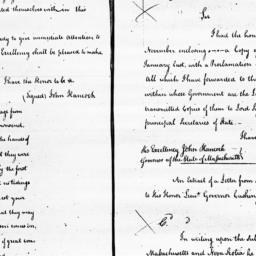 ted themselves with in this
dy to give immediate Attention to
Excellency shall be pleased to make
I have the Honor to be &c
(Signed) John Hancock
ge from
the hands of
t they were
by the first
no tidings
t your
at they may
of great con
Sir
I had the hon
November enclosing a Copy o
January last, with a Proclamation
All which I have forwarded to th
within whose Government are the
transmitted Copies of them to Lord
principal Secretaries of State.
I have
His Excellency John Hancock
Governor of the State of Massachusetts
An Extract of a Letter from
to His Honor Lieut Governor Cushing
C.
In writing upon the Sub
Massachusetts and Nova Scotia he